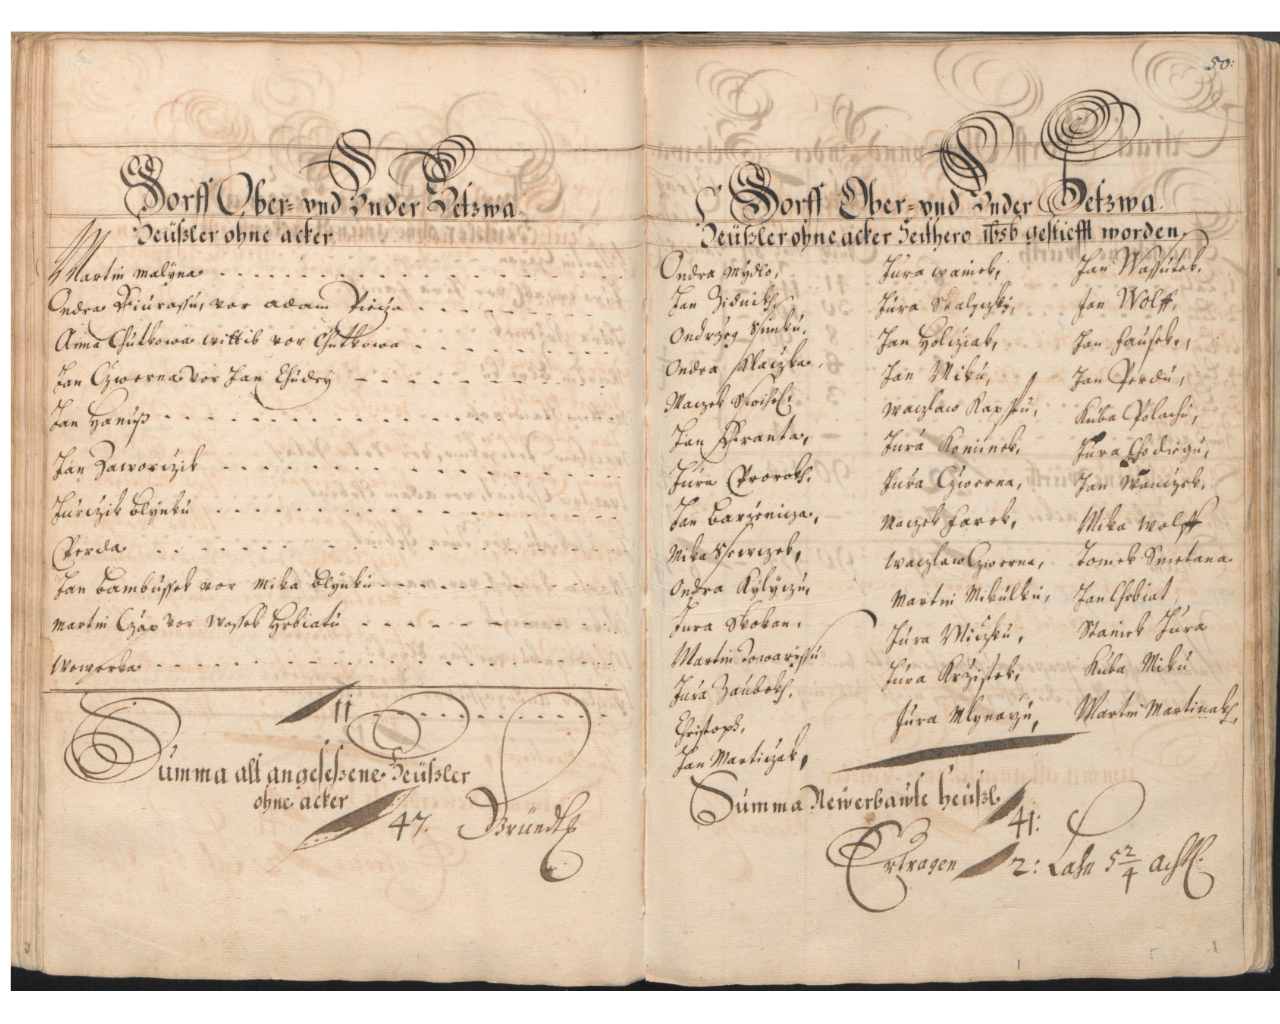 Dorff Ober- vnd Vnder Betzwa
Heüßler ohne acker
Martin Malyna
Ondra Giurassu, vor adam Piecza
Anna Chutkowa wittib vor Chutkowa
Jan Czwerna vor Jan Chudey
Jan Hanuß
Jan Zaworczik
Jurczik Blynku
Perda
Jan Bambussek vor Mika Blynku
Martin Czap vor Wassek Hrbiatu
Wewerka
11
Summa alt angeseßene Heüßler
ohne acker
47. Gründtl
50:
Dorff Ober- vnd Vnder Betzwa
Heüßler ohne acker Seithero 1656 gestiefft worden
Ondra Mydlo,
Jan Zidnikh,
Ondrzeg Simku,
Ondra Klaczka,
Maczek
Jan Franta,
Jura Prorokh,
Jan Barzinicza,
Mika Sewczek,
Ondra Kylyczu,
Jura Skokan,
Martin Towarissu
Jura Zaubekh,
Christoph,
Jan Marticzak,
Jura Waniek,
Jura Skalyczky,
Jan Holcziak,
Jan Miku,
Waczlaw Kapssu,
Jura Kominek,
Jura Czwerna,
Maczek Jarek,
Waczlaw Czwerna,
Martin Mikulku,
Jura Miczku,
Jura Krzistek,
Jura Mlynarzu,
Jan Wassutek,
Jan Wolff,
Jan Janssek,
Jan Perdu,
Kuba Polachu,
Jura Chodiegu,
Jan Wanczek,
Mika Wolff
Tomek Smetana
Jan Chrbiat
Staniek Jura
Kuba Miku
Martin Martinakh,
Summa Newerbawte Heüßl
41:
Ertragen 2: Lahn 5 2/4 acht.